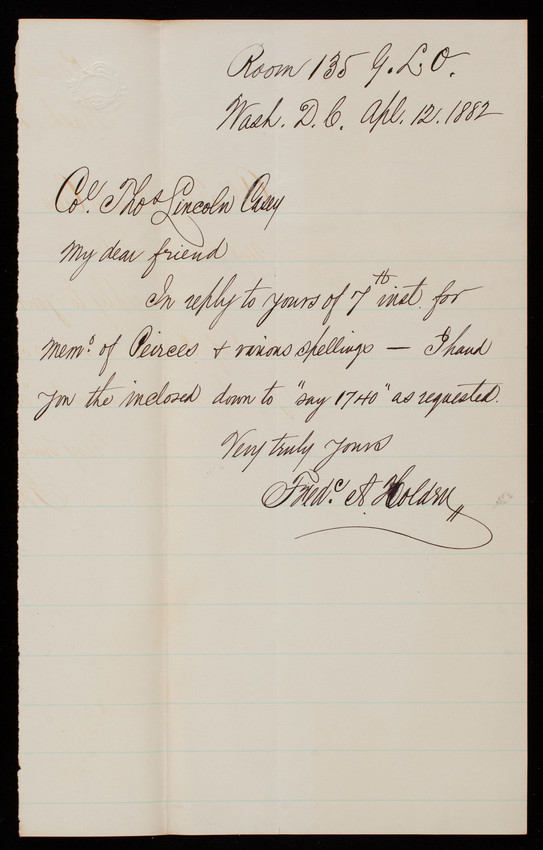 Room 135 G. L. O.
Wash. D. C. Apl. 12. 1882
Col. Thos Lincoln Casey
My dear friend
In reply to yours of 7th inst. for
memo. of Peirces & various spellings — I hand
you the inclosed down to "say 1740" as requested.
Very truly yours
Fredc. A. Holden